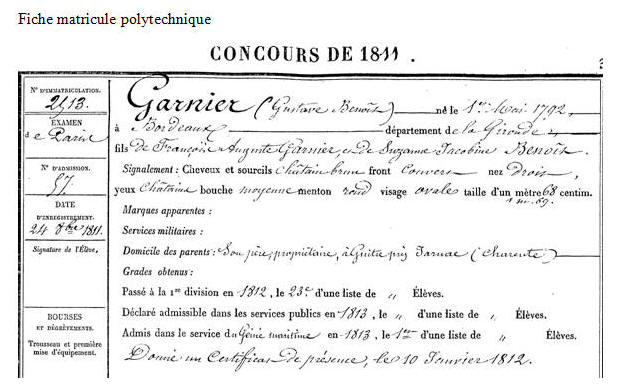 Fiche matricule polytechnique
CONCOURS DE 1811.
N° D'IMMATRICULATION.
2513.
EXAMEN
de Paris
N° D'ADMISSION.
57.
DATE
D'ENREGISTREMENT.
24 8bre 1811.
Signature de l'Élève.
BOURSES
ET DÉGRÈVEMENTS.
Trousseau et première
mise d'équipement.
Garnier (Gustave Benoît) né le 1er Mai 1792,
à Bordeaux département de la Gironde,
fils de François Auguste Garnier et de Suzanne Jacobine Benoît.
Signalement : Cheveux et sourcils châtain brun front couvert nez droit,
yeux châtains bouche moyenne menton rond visage ovale taille d'un mètre 68 centim.
1 m. 69.
Marques apparentes :
Services militaires :
Domicile des parents : Son père, propriétaire, à près Jarnac (Charente)
Grades obtenus :
Passé à la 1re division en 1812, le 23e d'une liste de „ Élèves.
Déclaré admissible dans les services publics en 1813, le „ d'une liste de „ Élèves.
Admis dans le service du Génie maritime en 1813, le 1er d'une liste de „ Élèves.
Donné un Certificat de présence, le 10 Janvier 1812.